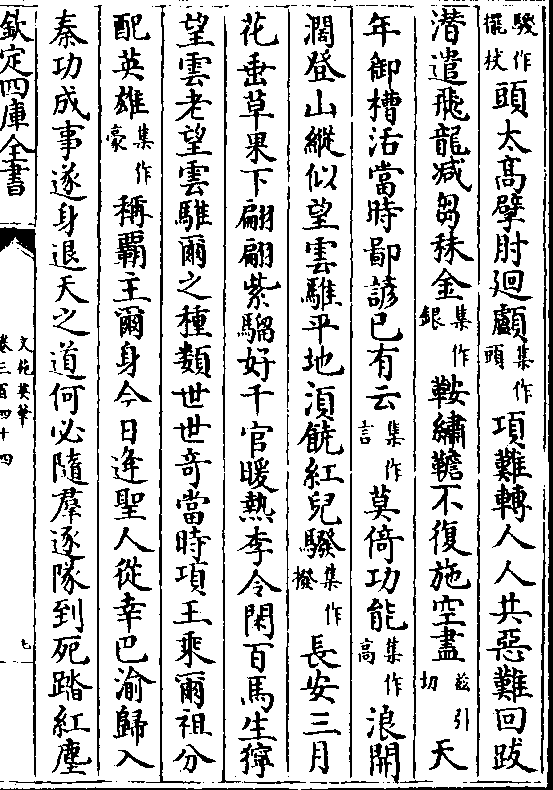 駿作擺杖頭太髙擘肘廻顱集作頭項難轉人人共惡難回跋
潜遣飛龍减芻秣金集作銀鞍繡韂不復施空盡兹引切天
年御槽活當時鄙諺已有云集作言莫倚功能集作高浪開
濶登山縱似望雲騅平地湏饒紅兒騣集作撥長安三月
花垂草果下翩翩紫騮好千官暖熱李令閑百馬生獰
望雲老望雲騅爾之種類世世奇當時項王乘爾祖分
配英雄集作豪稱覇主爾身今日逄聖人從幸巴渝歸入
秦功成事遂身退天之道何必隨羣逐隊到死踏紅塵
欽定四庫全書
文苑英華
卷三百四十四
七